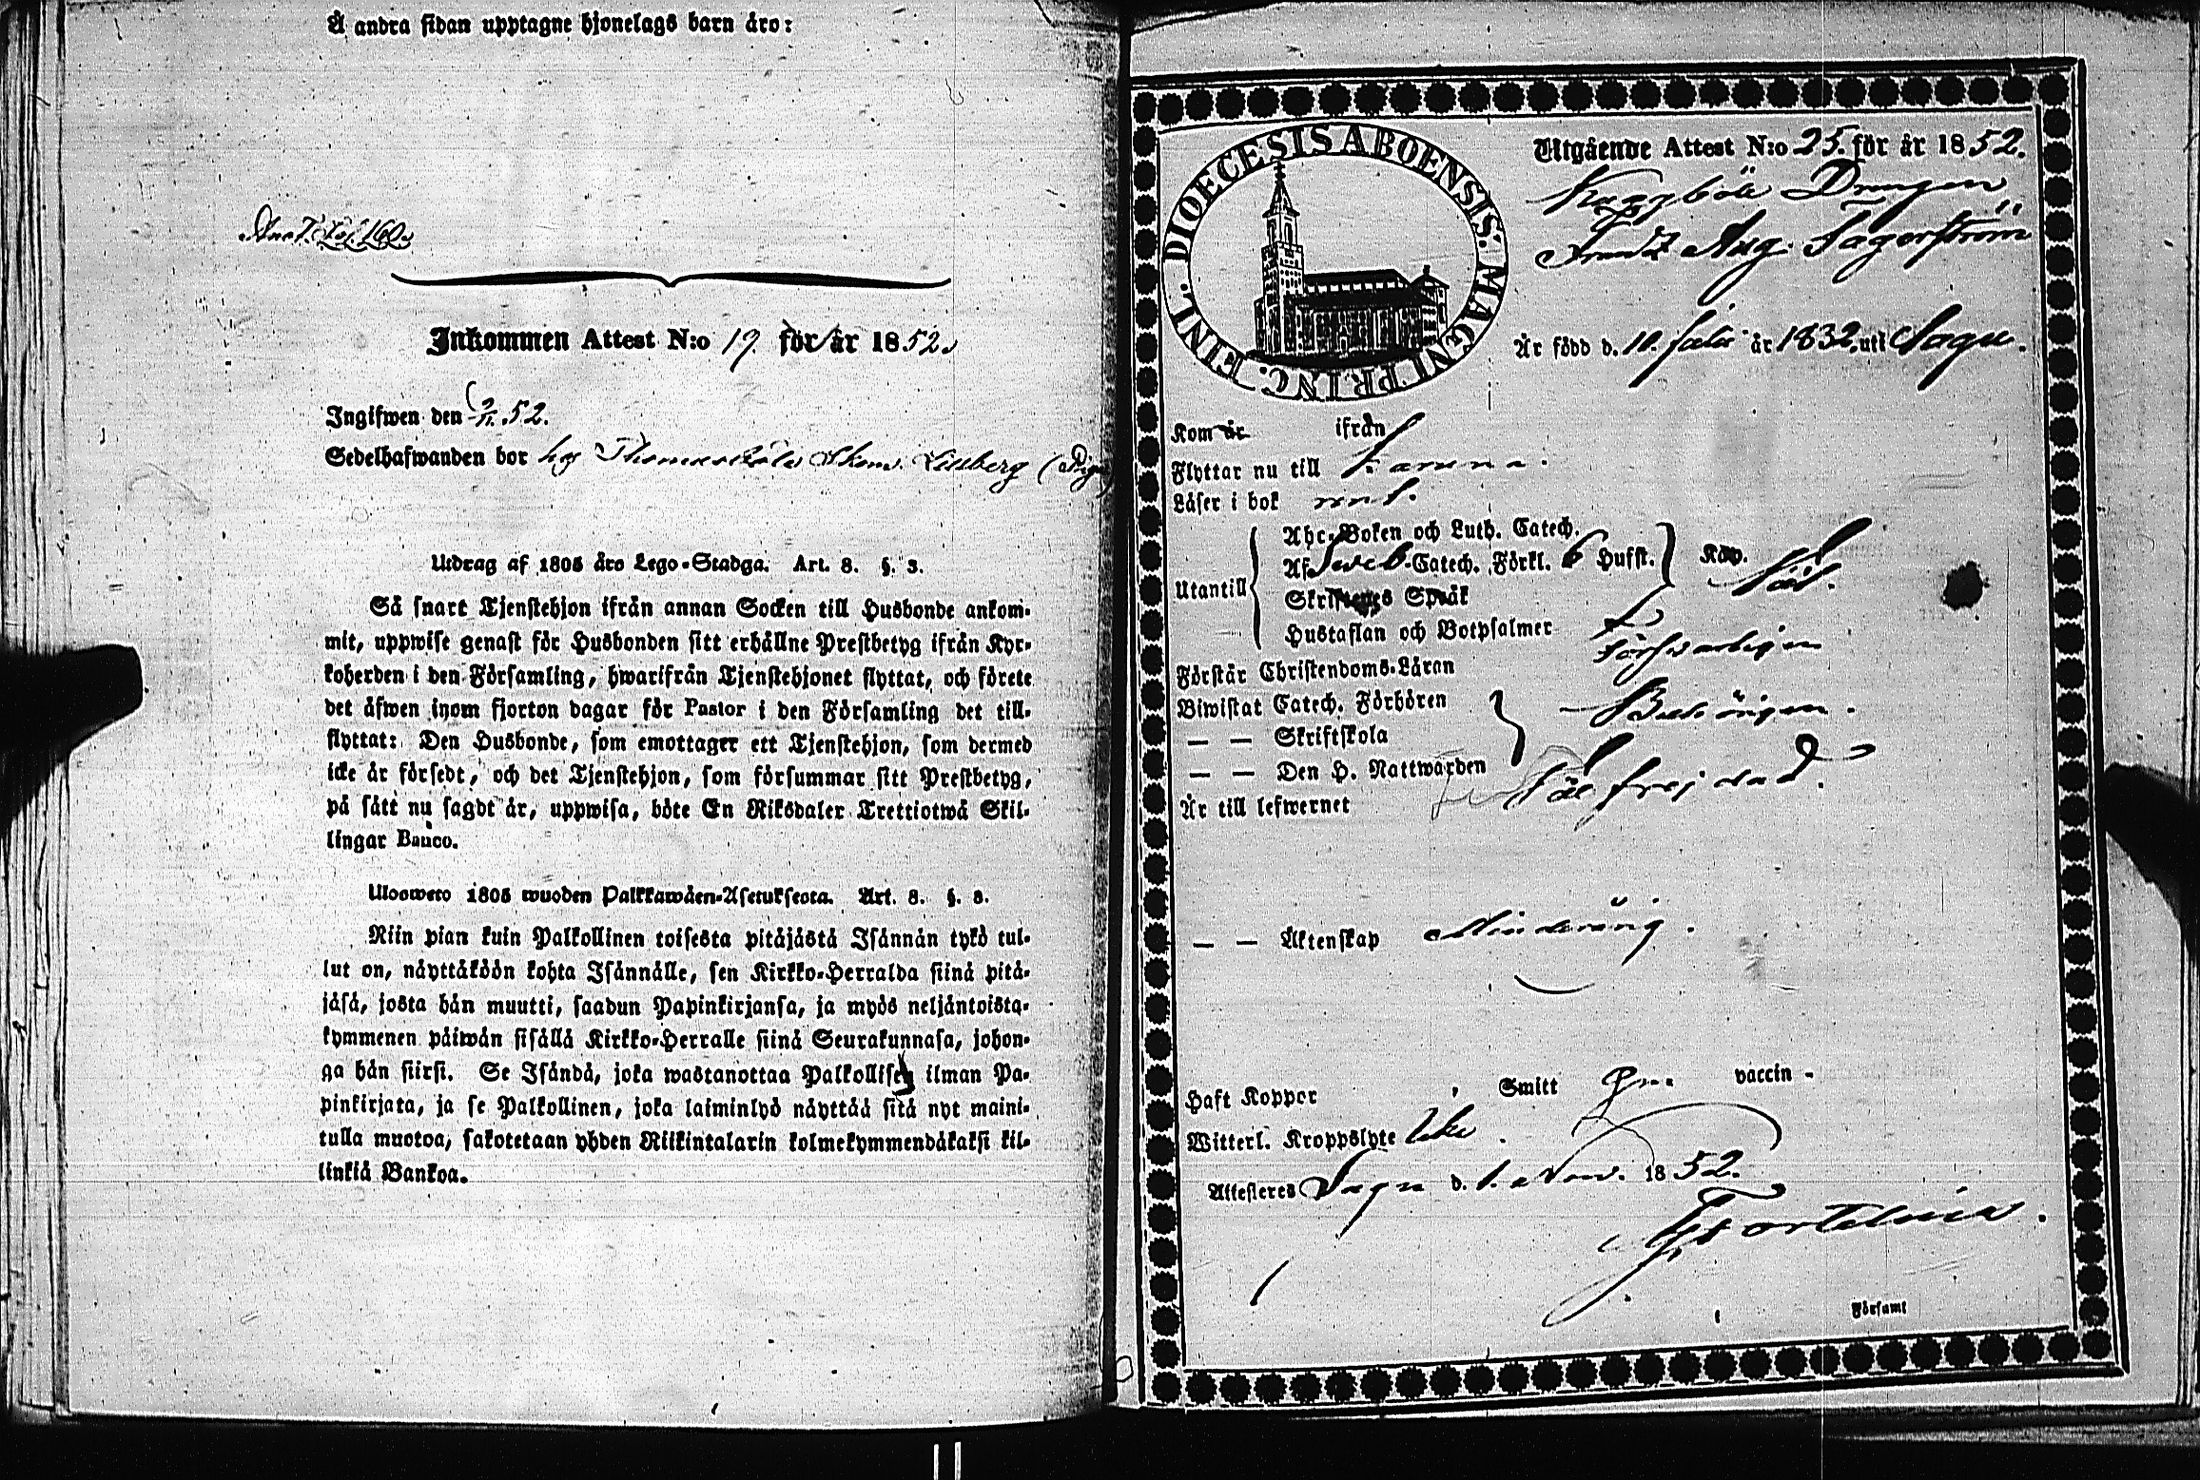 Å andra sidan upptagne hjonelags barn äro:
Inkommen Attest N:o 19. för år 1852.
Ingifwen den 9/11.52.
Sedelhafwanden bor hos Lillberg
Utdrag af 1805 åro Lego-Stadga. Art. 8. §. 3.
Så snart Tjenstehjon ifrån annan Socken till Husbonde ankom-
mit, uppwise genast för Husbonden sitt erhållne Prestbetyg ifrån Kyr-
koherden i den Församling, hwarifrån Tjenstehjonet flyttat, och förete
det äfwen inom fjorton dagar för Pastor i den Församling det till-
flyttat: Den Husbonde, som emottager ett Tjenstehjon, som dermed
icke är försedt, och det Tjenstehjon, som försummar sitt Prestbetyg,
på sätt nu sagdt är, uppwisa, böte En Riksdaler Trettiotwå Skil-
lingar Banco.
Ulosweto 1805 wuoden Palkkawäen-Asetuksesta. Art. 8. §. 3.
Niin pian kuin Palkollinen toisesta pitäjästä Isännän tykö tul-
lut on, näyttäköön kohta Isännälle, sen Kirkko-Herralda siinä pitä-
jäsä, josta hän muutti, saadun Papinkirjansa, ja myös neljäntoista-
kymmenen päiwän sisällä Kirkko-Herralle siinä Seurakunnasa, johon-
ga hän siirsi. Se Isändä, joka wastanottaa Palkollisen ilman Pa-
pinkirjata, ja se Palkollinen, joka laiminlyö näyttää sitä nyt maini-
tulla muotoa, sakotetaan yhden Riikintalarin kolmekymmendäkaksi kil-
linkiä Bankoa.
DIOECESIS ABOENSIS. MAGNI PRINC. FINL.
Utgående Attest N:o 25. för år 1852.
Drengen
Aug. Fagerström
Är född d. 11. år 1832. uti Sagu.
Kom år ifrån
Flyttar nu till Karuna.
Läser i bok rent.
Utantill
Abc-Boken och Luth. Catech.
Af Sveb. Catech. Förkl. 6 Hufst.
Skriftenes Språk
Hustaflan och Botpsalmer
Förstår Christendoms-Läran Försvarligen
Biwistat Catech. Förhören Behörigen.
— — Skriftskola
— — Den H. Nattwarden
Är till lefwernet Väl frejdad.
— — Äktenskap Minderårig.
Haft Koppor Smitt vaccin
Witterl. Kroppslyte Icke.
Attesteres Sagu d. 1. Nov. 1852.
Församl